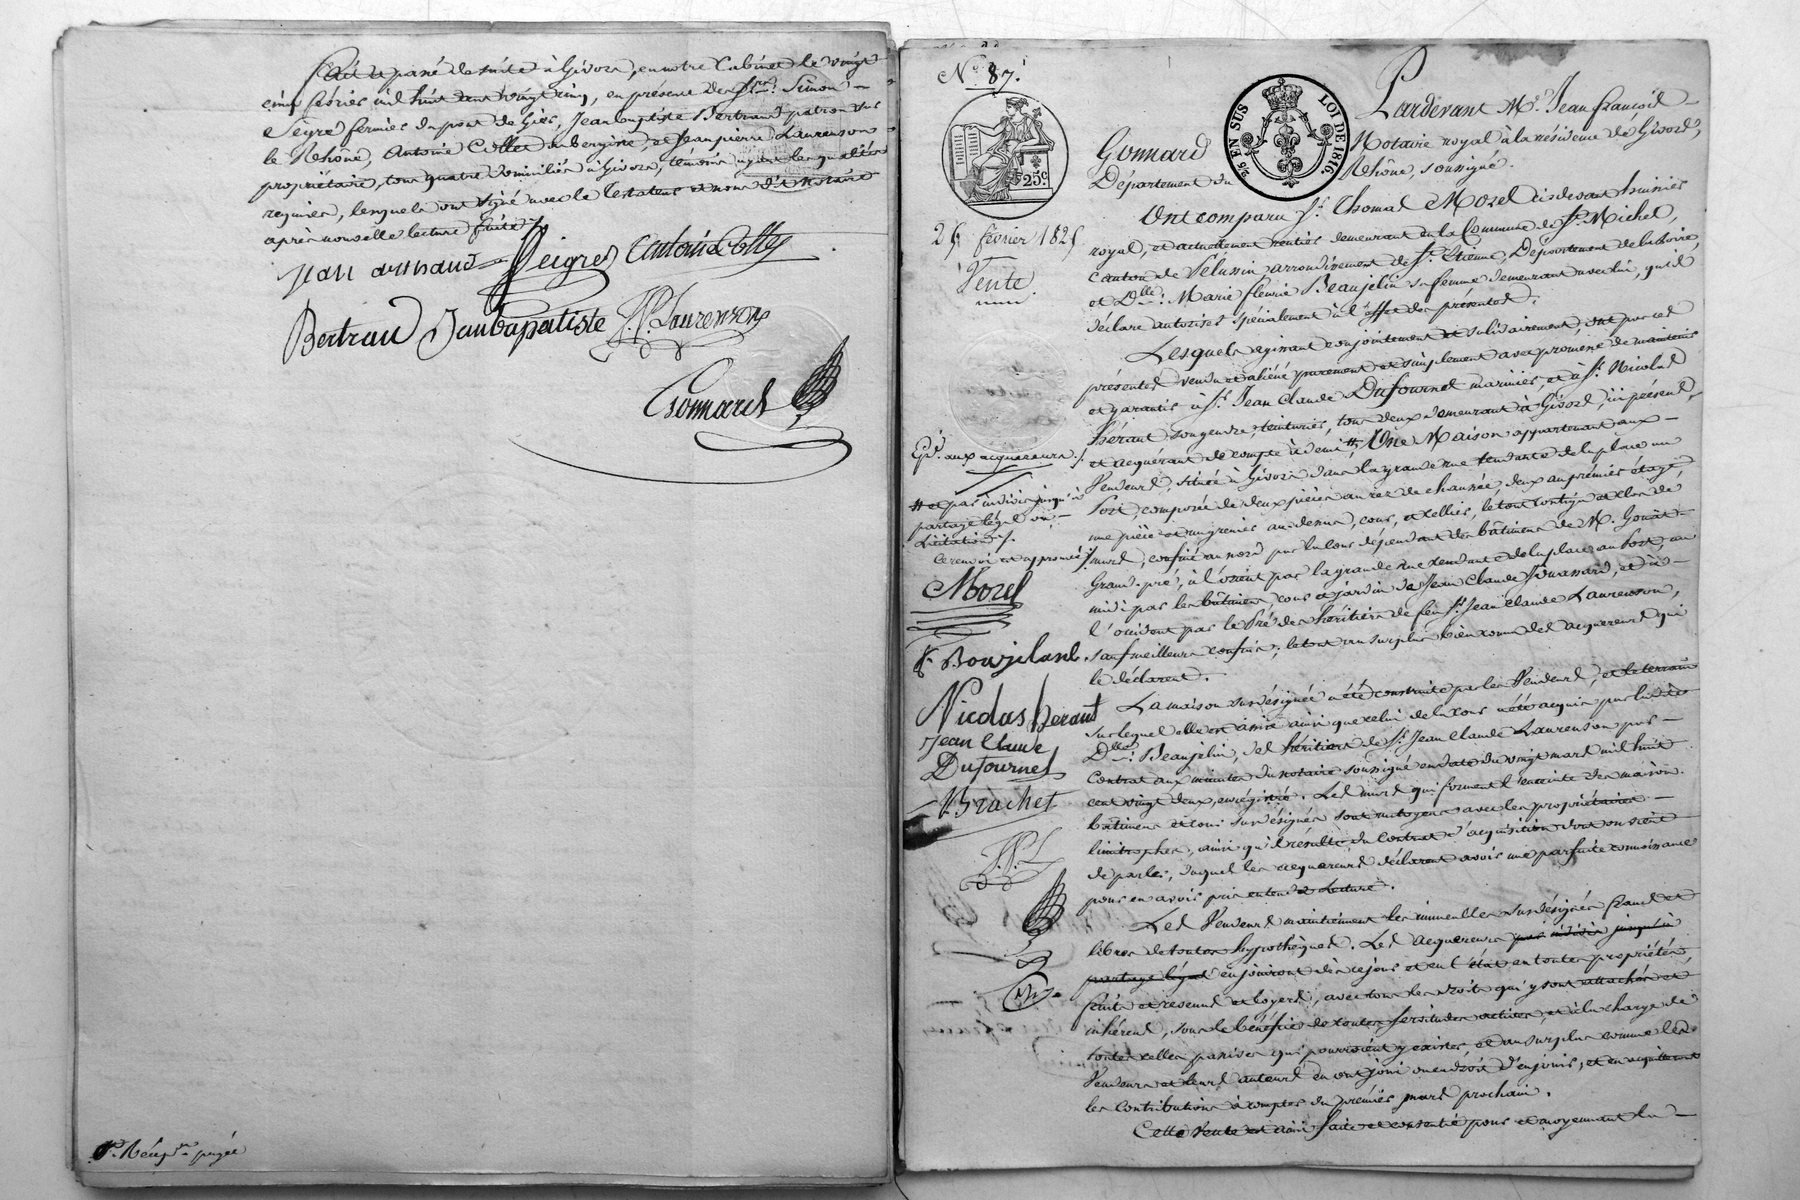 Fait et passé de suite à Givors, en notre Cabinet le vingt
cinq février mil huit cent vingt cinq, en présence de Srs. Simon
Seigre fermier du pont de Gier, Jean baptiste Bertrand patron sur
le Rhône, Antoine Collet aubergiste, et Jean pierre Laurenson
propriétaire, tous quatre domiciliés à Givors, témoins ayant les qualités
requises, lesquels ont signé avec le testateur et nous dit notaire
après nouvelle lecture faite.
Jean Seigre Antoine Collet
Bertran Janbapatiste J.P. Laurenson
Gonnard
N° 87.
25 février 1825
Vente
25c.
25 EN SUS LOI DE 1816
Pardevant Me. Jean françois
Gonnard Notaire royal à la résidence de Givors,
Département du Rhône, soussigné.
Ont comparu Sr. Thomas Morel cidevant huissier
royal, et actuellement rentier demeurant en la Commune de St. Michel,
canton de Pelussin, arrondissement de St. Etienne, Département de la Loire,
et Dlle. Marie fleurie Beaujelin sa femme demeurant avec lui, qu'il
déclare autoriser spécialement à l'effet des présentes.
Lesquels agissant conjointement et solidairement, ont par ces
présentes vendu et aliéné purement et simplement avec promesse de maintenir
et garantir à Sr. Jean Claude Dufournel marinier, et à Sr. Nicolas
Hérant son gendre, teinturier, tous deux demeurant à Givors, ici présents,
et acquérant de compte à demi, # Une Maison appartenant aux
Vendeurs, située à Givors dans la grande rue tendante de la place au
Port, composée de deux pièces au rez de chaussée, deux au premier étage,
une pièce et un grenier au dessus, cour, et cellier, le tout contigu et clos de
murs, confiné au nord par la cour dépendant des bâtimens de M.
Grand-pré, à l'orient par la grande rue tendante de la place au Port, au
midi par les bâtimens cour et jardin de Jean Claude Jouassard, et à
l'occident par le Pré des héritiers de feu Sr. Jean Claude Laurenson,
sauf meilleurs confins; le tout au surplus bien connu des acquereurs qui
le déclarent.
La maison sus désignée a été construite par les Vendeurs, et le terrain
sur lequel elle est assise ainsi que celui de la cour a été acquis par ladite
Dlle. Beaujelin, des héritiers de Sr. Jean Claude Laurenson par
contrat aux minutes du notaire soussigné en date du vingt mars mil huit
cent vingt deux, enregistré. Les murs qui forment l'enceinte des maison
bâtimens et cour sus désignés sont mitoyens avec les propriétaires
limitrophes, ainsi qu'il résulte du Contrat d'acquisition dont on vient
de parler, duquel les acquereurs déclarent avoir une parfaite connaissance
pour en avoir pris entendu Lecture.
Les Vendeurs maintiennent les immeubles sus désignés francs et
libres de toutes hypothèques. Les acquereurs par indivis jusqu'à
partage légal en jouiront dès ce jour et en l'état en toutes propriétés,
fruits et revenus et loyers, avec tous les droits qui y sont attachés et
inhérens, sous le bénéfice de toutes servitudes actives, et à la charge de
toutes celles passives qui pourroient y exister et au surplus comme les
Vendeurs et leurs auteurs en ont joui ou eu droit d'en jouir, et en acquittant
les contributions à compter du premier mars prochain.
Cette Vente est ainsi faite et consentie pour et moyennant la
Exp. aux acquereurs.
# et par indivis jusqu'à
partage légal ou
Licitation /.
Ce renvoi est approuvé
Morel
f. Boujelanl
Nicolas herant
Jean Claude
Dufournel
Brachet
J.P.L